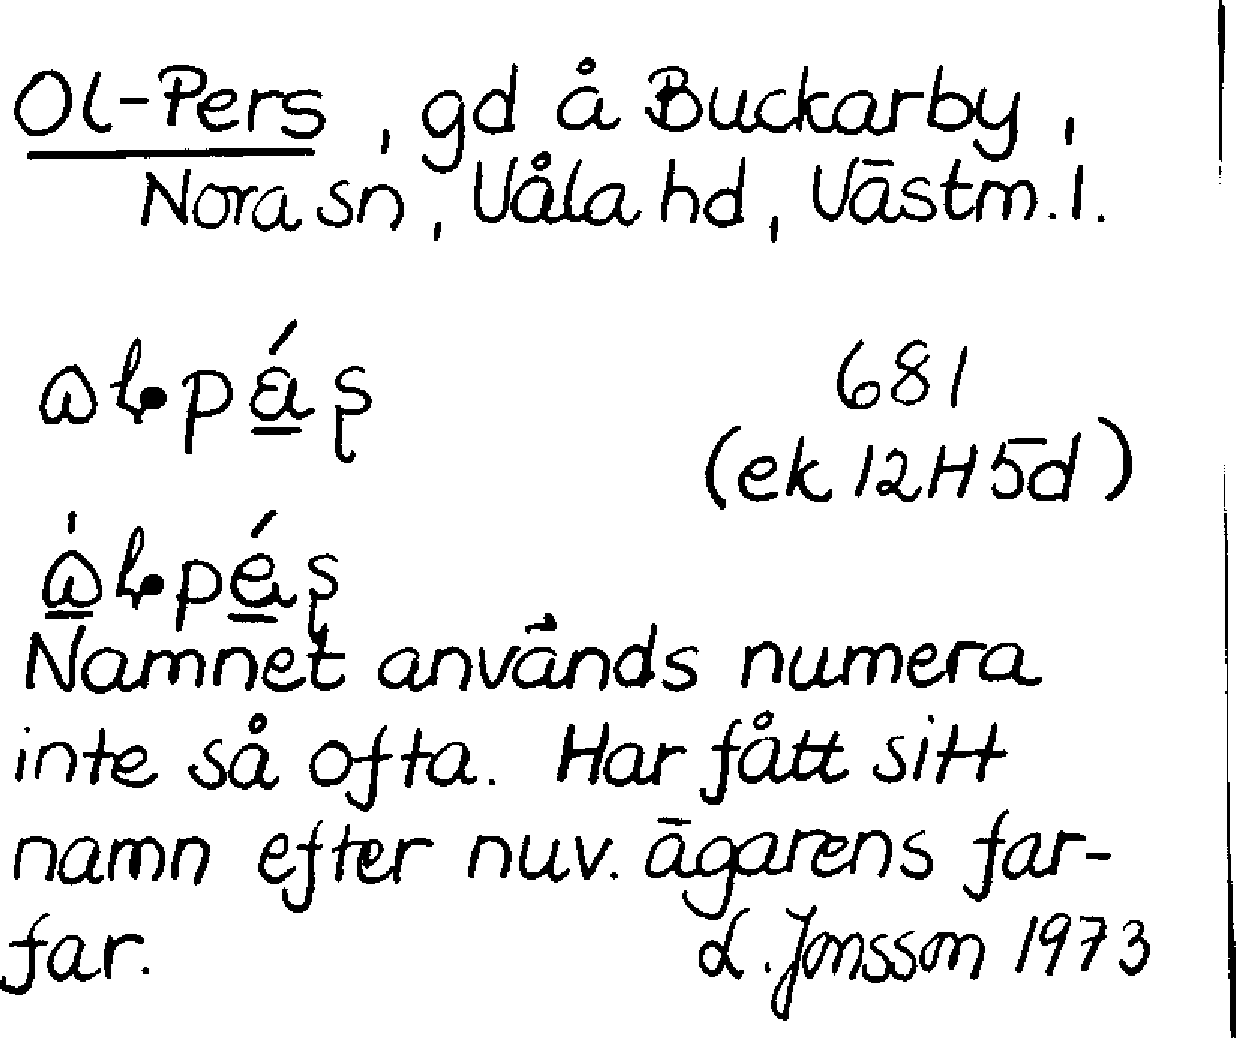 Ol-Pers, gd å Buckarby,
Nora sn, Våla hd, Västm. l.
681
(ek 12H5d)
Namnet används numera
inte så ofta. Har fått sitt
namn efter nuv. ägarens far-
far.
L. Jonsson 1973